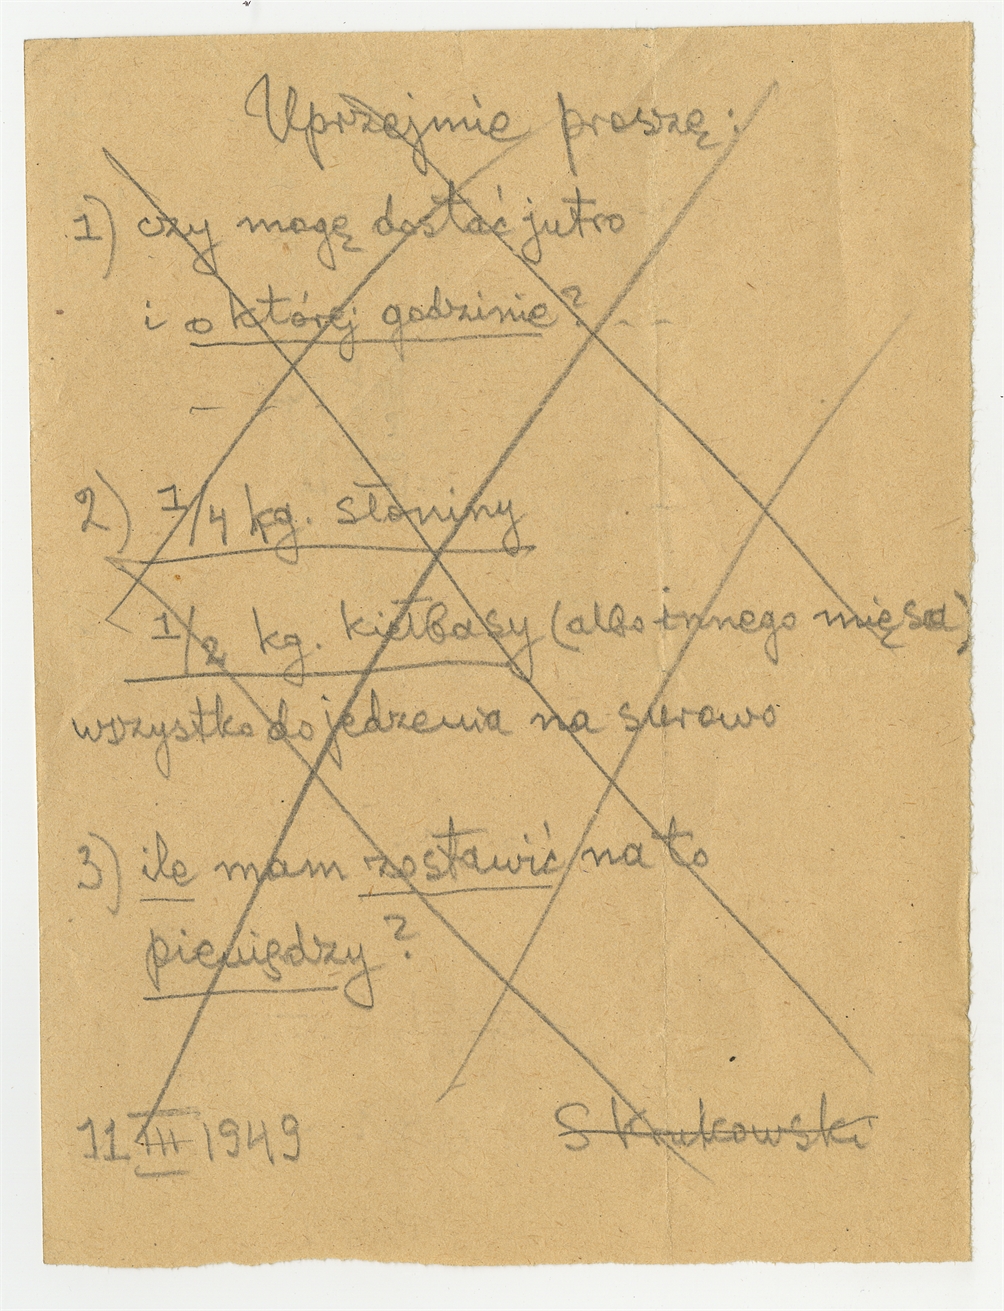 Uprzejmie proszę:
1) czy mogę dostać jutro
i o której godzinie?
2) 1/4 kg. słoniny
1/2 kg. kiełbasy (albo innego mięsa)
wszystko do jedzenia na surowo
3) ile mam zostawić na to
pieniędzy?
11 III 1949
S Krukowski